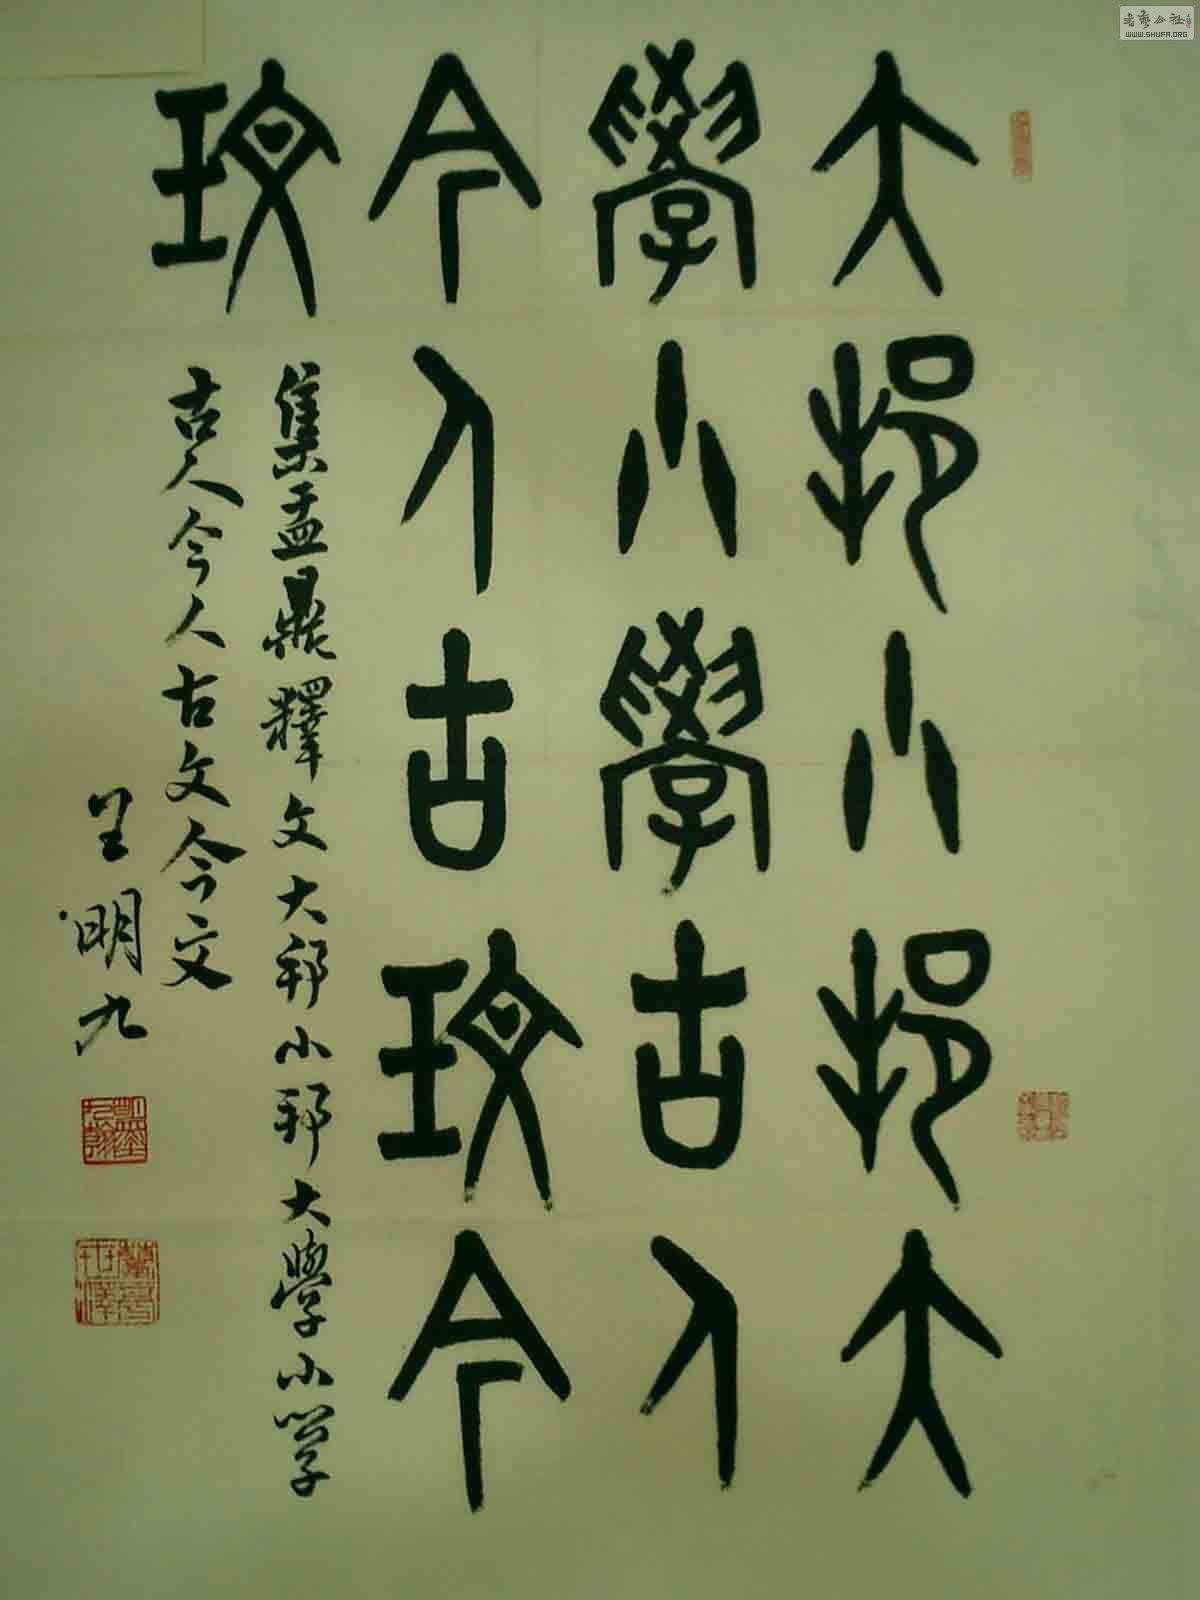 大邦小邦大
學小學古人
今人古玟今
玟
集盂鼎釋文大邦小邦大學小学
古人今人古文今文
明九
WWW.SHUFA.ORG